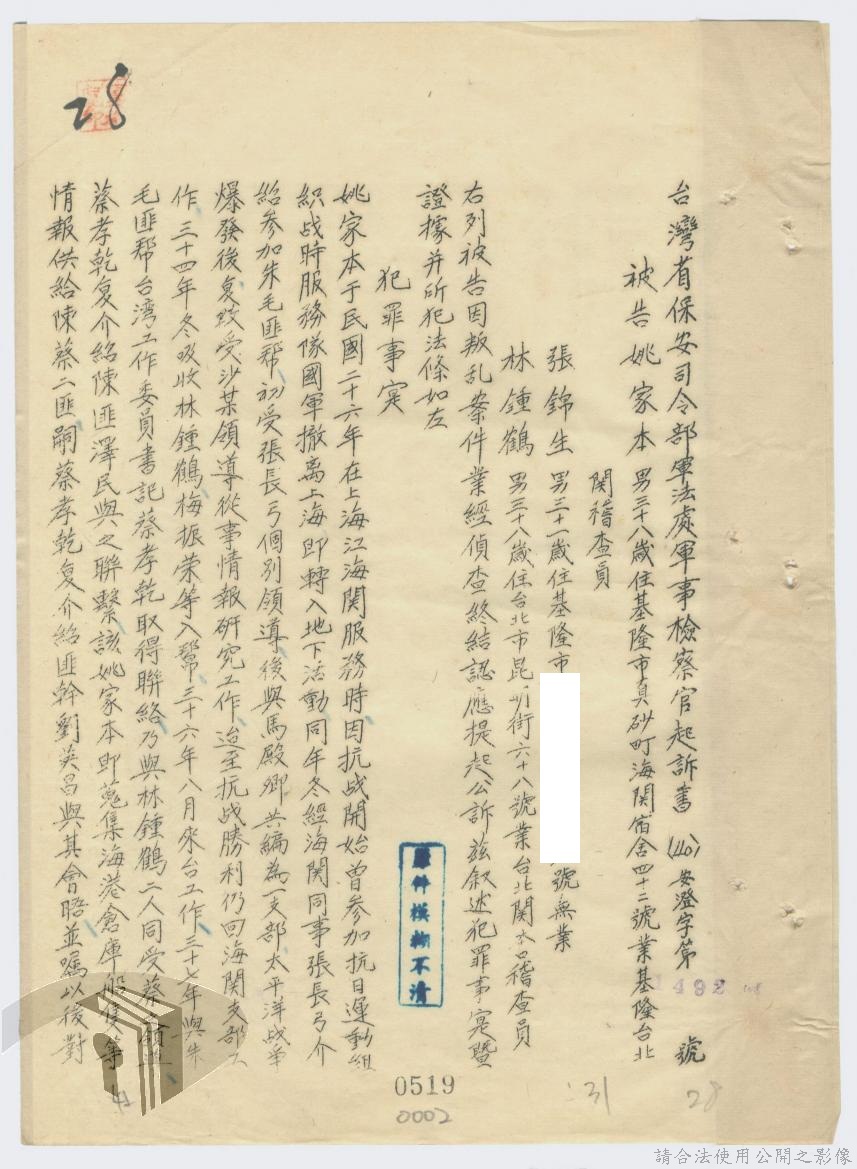 台灣省保安司令部軍法處軍事檢察官起訴書 (40)安澄字第1492號
被告姚家本 男三十八歲住基隆市真砂町海関宿舍四十二號業基隆台北
関稽查員
張錦生 男三十一歲住基隆市 號無業
林鍾鶴 男三十八歲住台北市昆明街六十八號業台北関 稽查員
右列被告因叛乱案件業經偵查終結認應提起公訴茲叙述犯罪事実暨
證據并所犯法條如左
犯罪事実
姚家本于民國二十六年在上海江海関服務時因抗战開始曾參加抗日運動組
織战時服務隊國軍撤离上海即轉入地下活動同年冬經海関同事張長弓介
紹參加朱毛匪帮初受張長弓個別領導後與馬殿卿共編為一支部太平洋战爭
爆發後复改受沙某領導從事情報研究工作迨至抗战勝利仍回海関支部工
作三十四年冬吸收林鍾鶴梅振荣等入幫三十六年八月來台工作三十七年與朱
毛匪帮台湾工作委員書記蔡孝乾取得聯絡乃與林鍾鶴二人同受蔡 領導
蔡孝乾复介紹陳匪澤民與之聯繫該姚家本即蒐集海港倉庫船隻等
情報供給陳蔡二匪嗣蔡孝乾复介紹匪幹劉英昌與其會晤並嘱以後對
28
原件模糊不清
0519
0002
31
28
請合法使用公開之影像